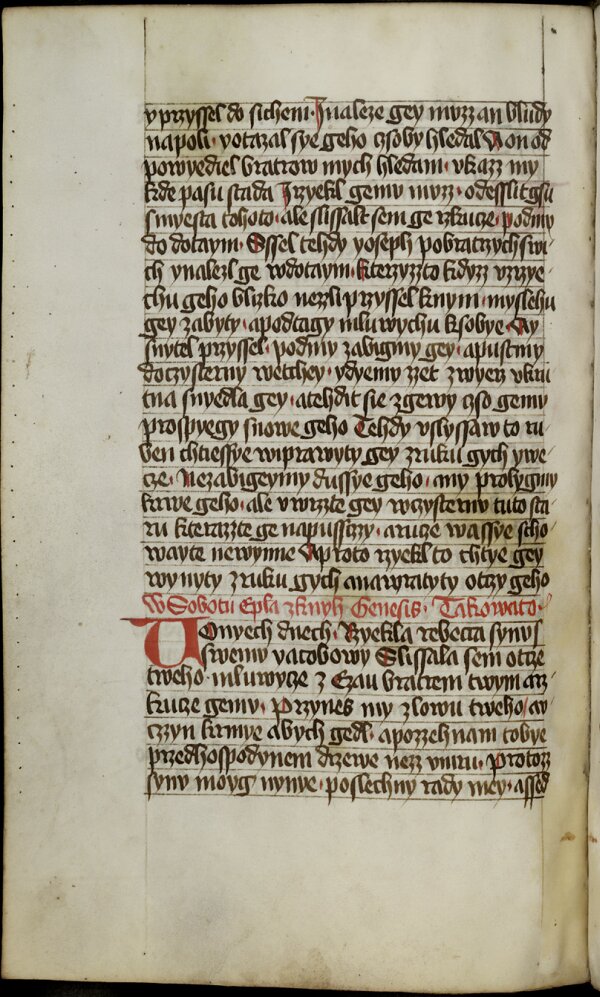 y przyssel do sichem · J naleze gey muzz an bludy
napoli · y otazal sye geho czso by hledal A on od
powyediel bratrow mych hledam · vkazz my
kde pasu stada J rzyekl gemu muzz · odessli tgsu
s myesta tohoto · ale slissalt sem ge rzkucze · podmy
do dotaym · Ssel tehdy yoseph po bratrzych swi
ch y nalezl ge w dotaym · kterzyzto kdyz vzrzye
chu geho blizko nezli przyssel k nym · myslechu
gey zabyty · a podtagy mluwychu k sobye · Ay
snytel przyssel · podmy zabigmy gey · a pustmy
do czysterny wetchey · y dyemy zzet zwyerz vkru
tna snyedla gey · a tehdit sie zgewy czso gemu
prospyegy snowe geho Tehdy vslyssaw to ru
ben chtiesye wiprawyty gey z ruku gych y we
cze · Nezabigeymy dussye geho · any prolygmy
krwe geho · ale vwrzte gey w czysternu tuto sta
ru kterazzto ge na pussczy · a rucze wassye scho
wayte newynne A proto rzyekl to chtye gey
wynyty z ruku gych a nawratyty otczy geho
W Sobotu Epla z knyh Genesis · Takowato ·
Uonyech dnech · Rzyekla rebecca synu s
swemu yacobowy Slissala sem otcze
tweho · mluwycze z Ezau bratrem twym a rz
kucze gemu · Przynes my z lowu tweho / a v
czyn krmye abych gedl · a pozzehnam tobye
przed hospodynem drzewe nezz vmru · Protozz
synu moyg nynye · poslechny rady mey · a ssed